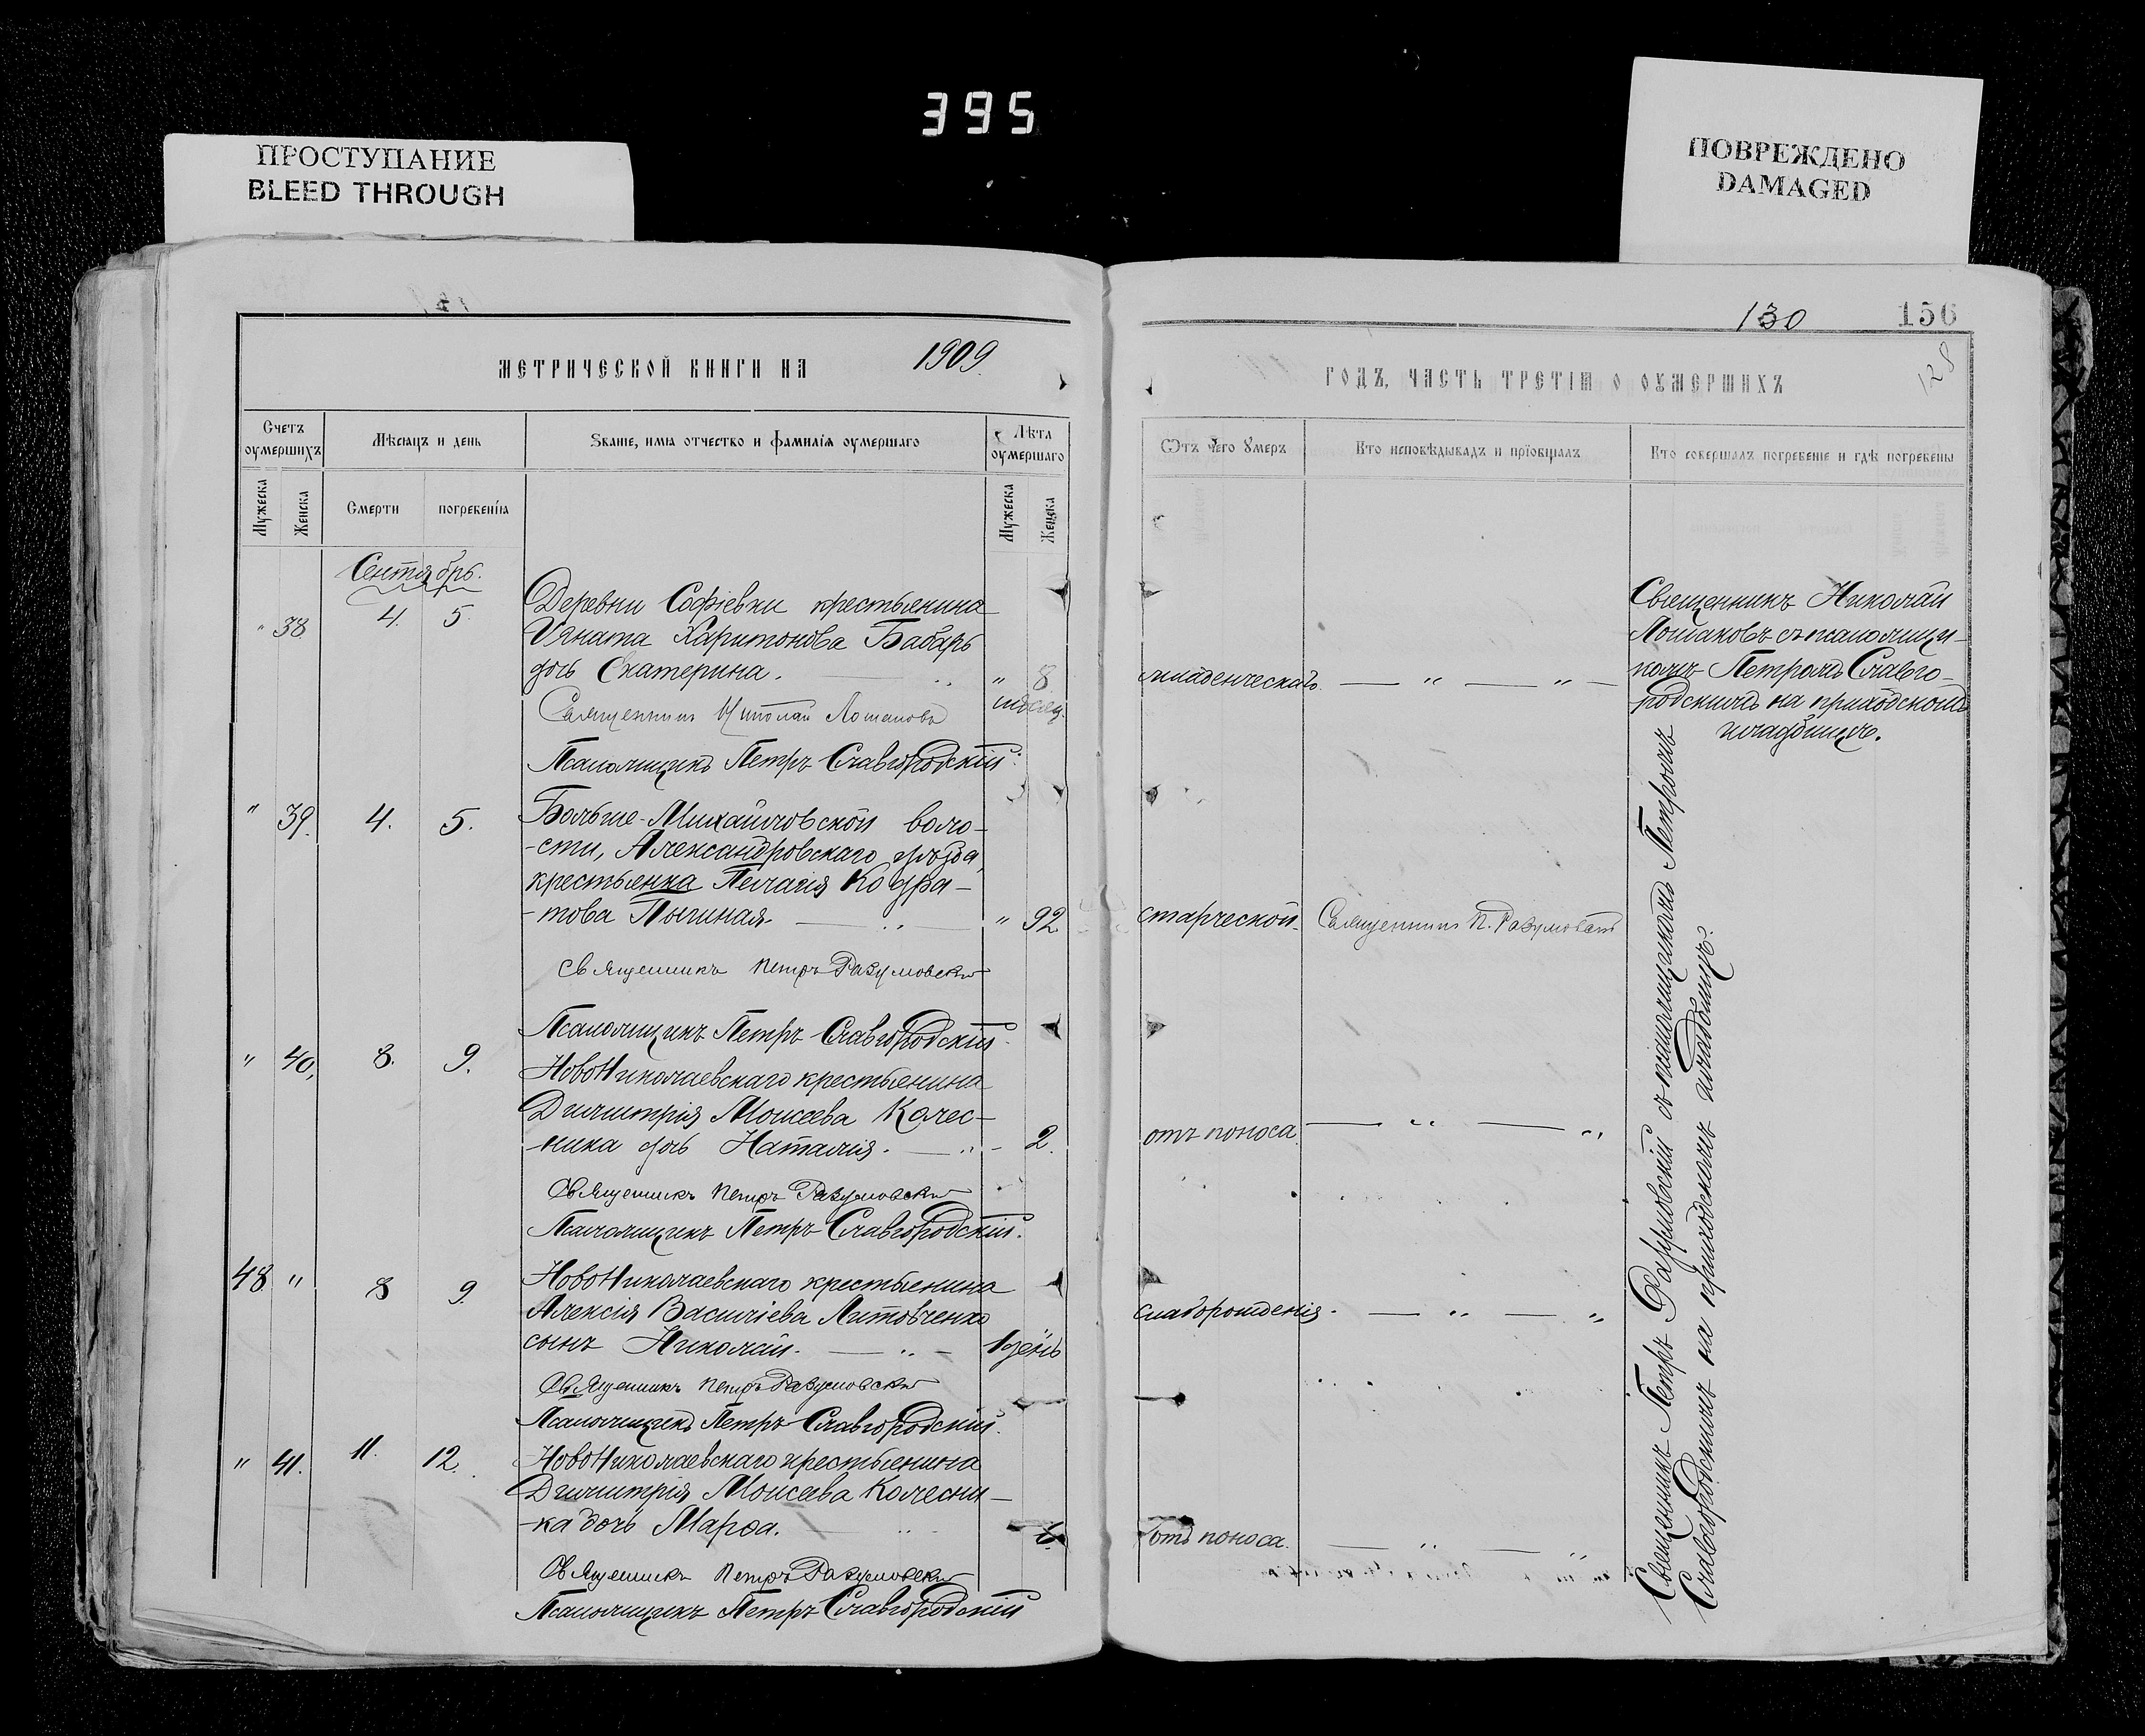 395
ПРОСТУПАНИЕ
BLEED THROUGH
ПОВРЕЖДЕНО
DAMAGED
130 156
128
МЕТРИЧЕСКОЙ КНИГИ НА 1909
ГОДЪ, ЧАСТЬ ТРЕТІЯ О ОУМЕРШИХЪ
Счетъ оумершихъ
Мѣсяцъ и день
Званіе, имя отчество и фамилія оумершаго
Лѣта оумершаго
Мужеска
Женска
Смерти
погребенія
Мужеска
Женска
Ѿтъ чего умеръ
Кто исповѣдывалъ и пріобщалъ
Кто совершалъ погребеніе и гдѣ погребены
Сентябрь.
" 38 4. 5.
Деревни Софіевки крестьянина
Игната Харитонова Бабарь
дочь Екатерина. " 8
мѣсяц.
Священникъ Николай Лошаковъ
Псаломщикъ Петръ Славгородскій.
младенческаго — " — " —
Священникъ Николай
Лошаковъ съ псаломщи-
комъ Петромъ Славго-
родскимъ на приходскомъ
кладбищѣ.
" 39. 4. 5.
Больше-Михайловской воло-
-сти, Александровскаго уѣзда,
крестьянка Пелагія Кодра-
-това Пычиная. " 92
Священникъ Петръ Разумовскій
Псаломщикъ Петръ Славгородскій.
старческой. Священникъ П. Разумовскій
" 40, 8. 9.
НовоНиколаевскаго крестьянина
Димитрія Моисеева Колес-
-ника дочь Наталія. — " — 2.
Священникъ Петръ Разумовскій
Псаломщикъ Петръ Славгородскій.
отъ поноса. — " — "
48. " 8 9.
НовоНиколаевскаго крестьянина
Алексія Василіева Литовченко
сынъ Николай. — " — 1 день
Священникъ Петръ Разумовскій
Псаломщикъ Петръ Славгородскій.
слаборожденія. — " — "
" 41. 11. 12.
НовоНиколаевскаго крестьянина
Димитрія Моисеева Колесни-
-ка дочь Марѳа.
Священникъ Петръ Разумовскій
Псаломщикъ Петръ Славгородскій
отъ поноса. — " — "
Священникъ Петръ Разумовскій съ псаломщикомъ Петромъ
Славгородскимъ на приходскомъ кладбищѣ.